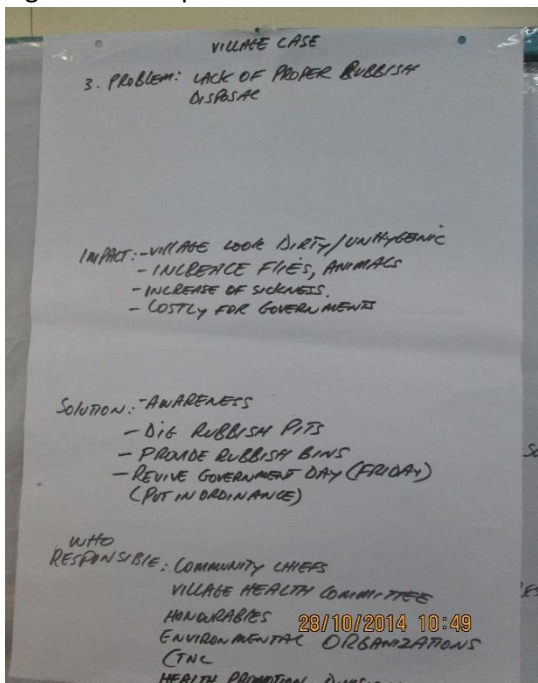 VILLAGE CASE
3. PROBLEM: LACK OF PROPER RUBBISH
DISPOSAL
IMPACT: - VILLAGE LOOK DIRTY/UNHYGENIC
- INCREACE FLIES, ANIMALS
- INCREASE OF SICKNESS.
- COSTLY FOR GOVERNMENTS
SOLUTION: - AWARENESS
- DIG RUBBISH PITS
- PROVIDE RUBBISH BINS
- REVIVE GOVERNMENT DAY (FRIDAY)
(PUT IN ORDINANCE)
WHO
RESPONSIBLE: COMMUNITY CHIEFS
VILLAGE HEALTH COMMITTEE
HONOURABLES
28/10/2014 10:49
ENVIRONMENTAL ORGANIZATIONS
(TNC
HEALTH PROMOTION